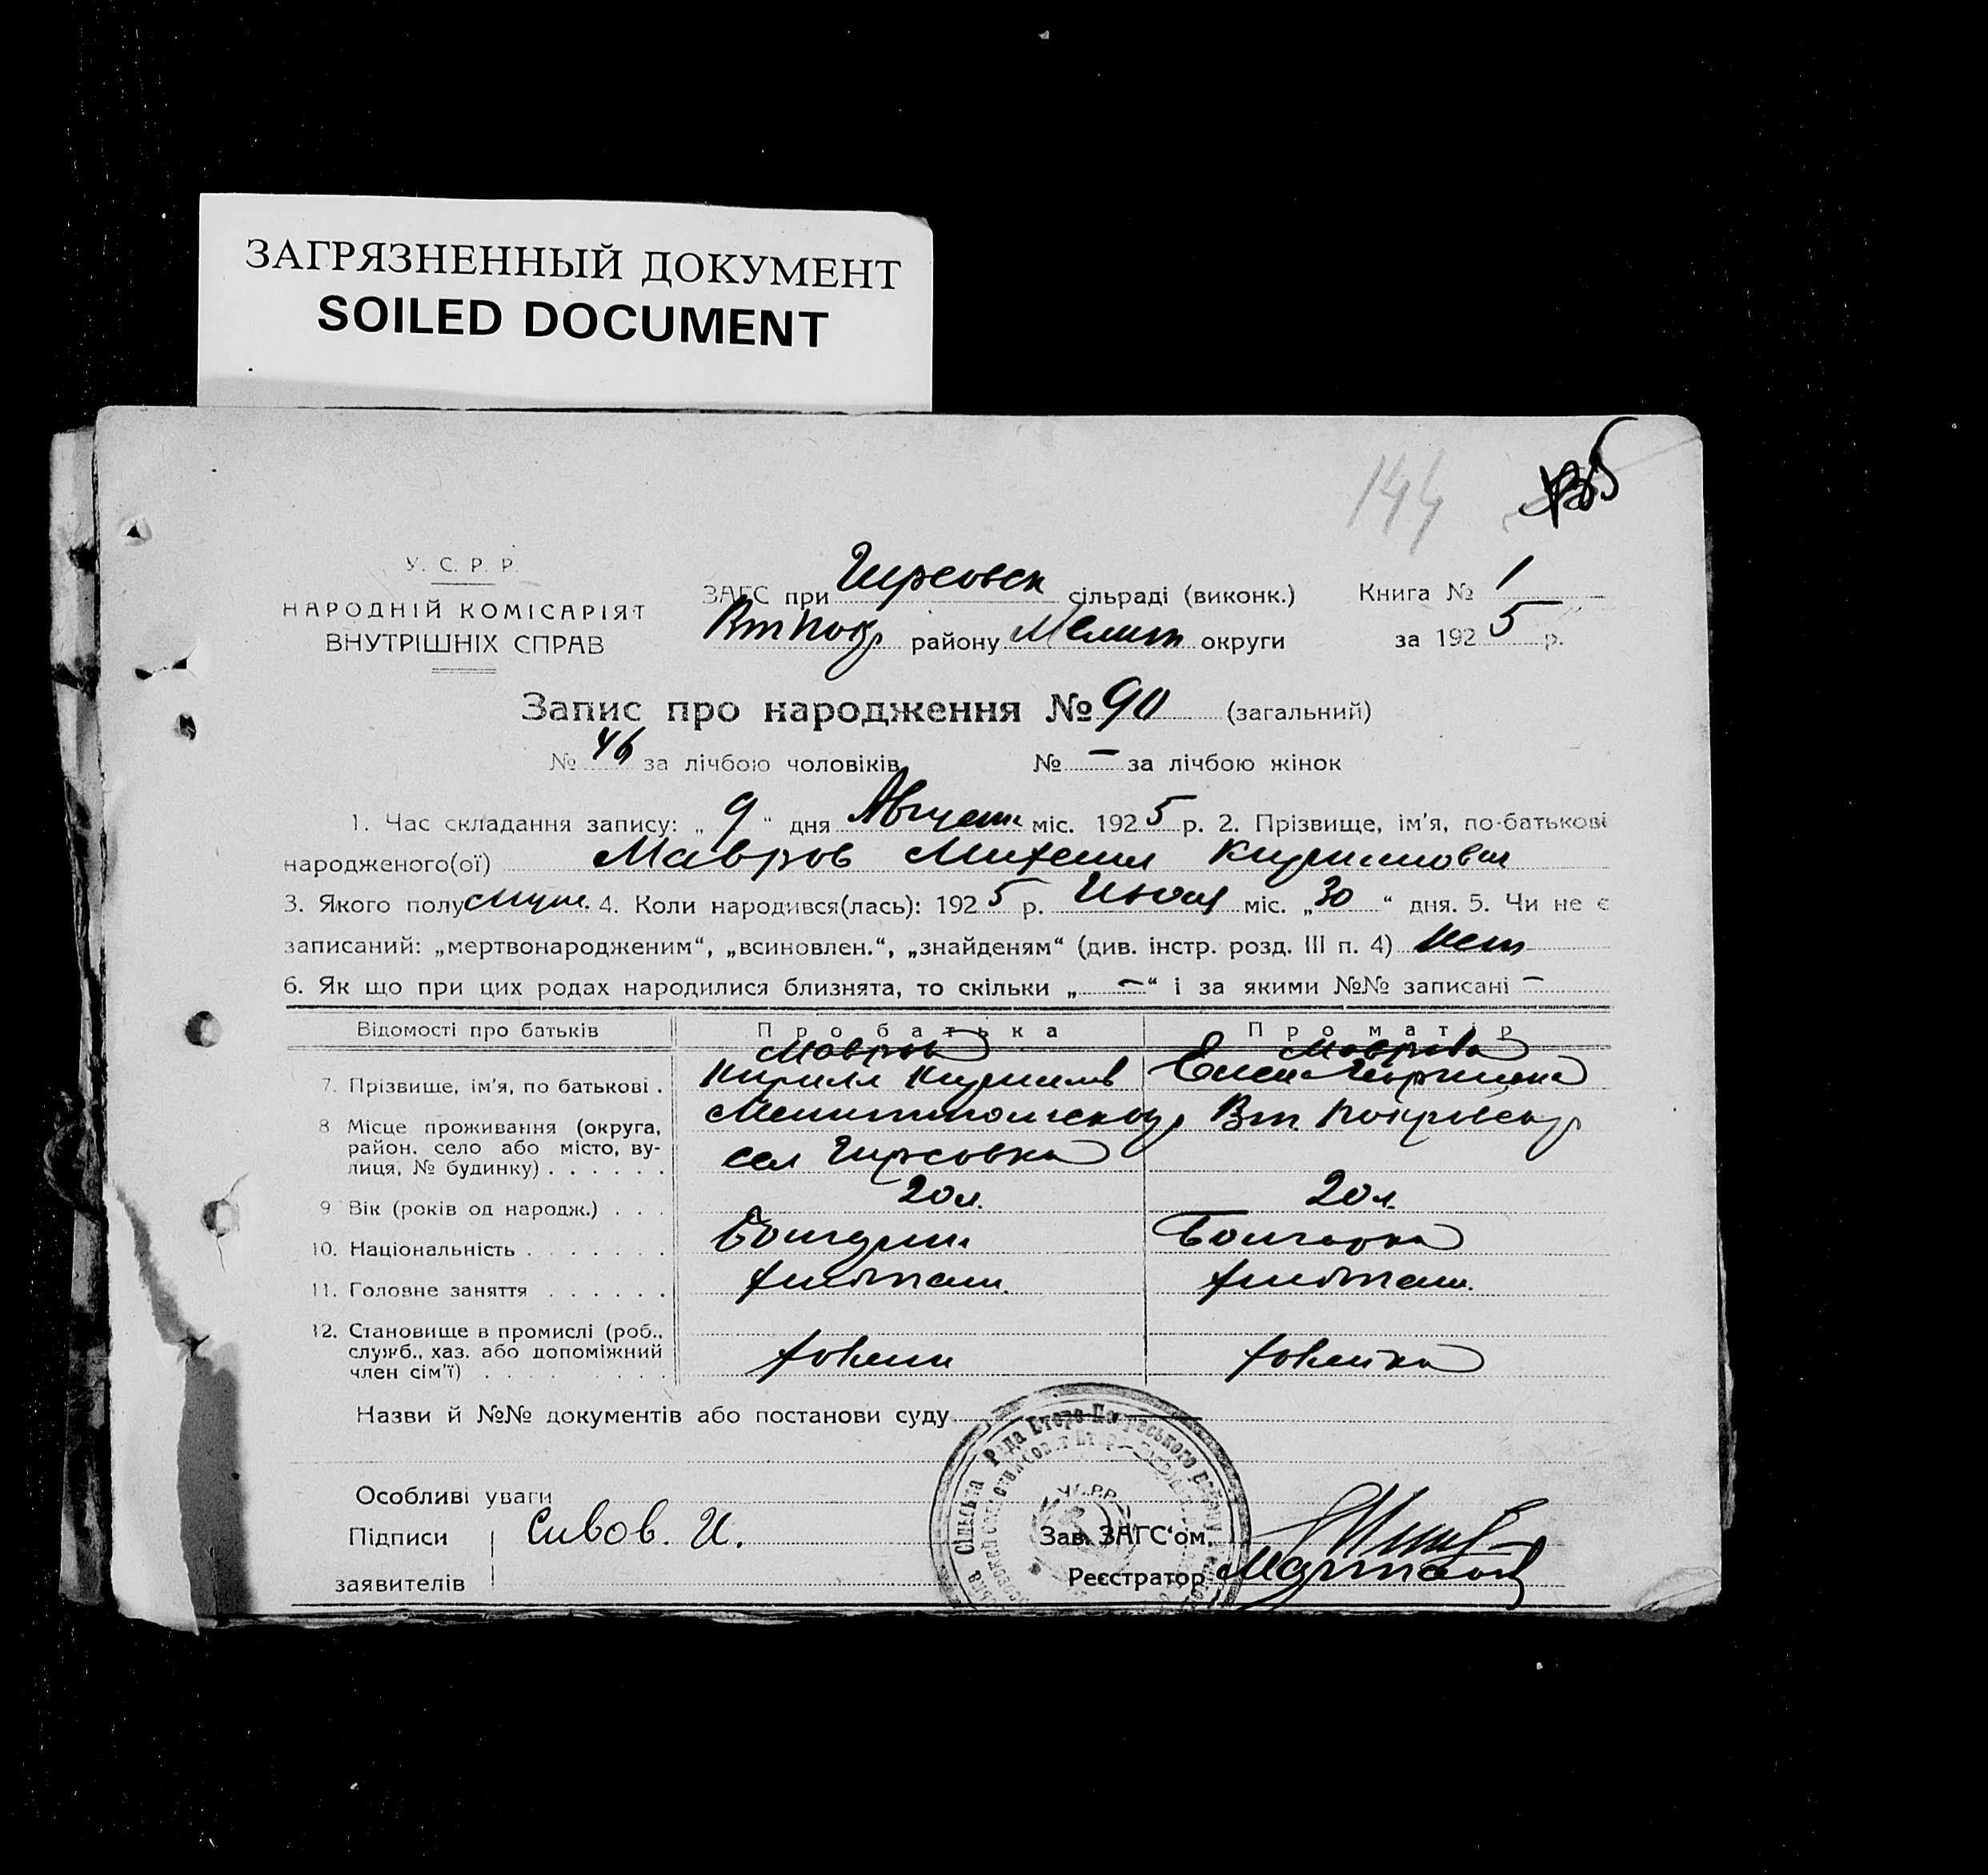 ЗАГРЯЗНЕННЫЙ ДОКУМЕНТ
SOILED DOCUMENT
144
У. С. Р. Р.
НАРОДНІЙ КОМІСАРІЯТ
ВНУТРІШНІХ СПРАВ
ЗАГС при Гирсовск сільраді (виконк.) Книга № 1
Вт Покр району Мелит округи за 1925 р.
Запис про народження № 90 (загальний)
№ 46 за лічбою чоловіків № — за лічбою жінок
1. Час складання запису: „ 9 “ дня Августа міс. 1925 р. 2. Прізвище, ім'я, по-батькові
народженого(ої) Мавров Михаил Кириллович
3. Якого полу муж. 4. Коли народився(лась): 1925 р. Июля міс. „30“ дня. 5. Чи не є
записаний: „мертвонародженим“, „всиновлен.“, „знайденям“ (див. інстр. розд. III п. 4) нет
6. Як що при цих родах народилися близнята, то скільки „ — “ і за якими №№ записані —
Відомості про батьків Про батька Про матір
Мавров Маврова
7. Прізвище, ім'я, по батькові . Кирилл Кирилов Елена Георгиевна
8 Місце проживання (округа, Мелитопольскоу Вт. Покровскоу
район. село або місто, ву-
лиця, № будинку) . . . . . . сел Гирсовка
9 Вік (років од народж.) . . . 20л. 20л.
10. Національність . . . . . . . Болгарин Болгарка
11. Головне заняття . . . . . . хлебпаш. хлебпаш.
12. Становище в промислі (роб.,
служб., хаз. або допоміжний
член сім'ї) . . . . . . . . . хозяин хозяйка
Назви й №№ документів або постанови суду
Особливі уваги
Підписи Сивов. И. Зав. ЗАГС'ом
заявителів Реєстратор
Сільська Рада Второ-Покровського району
У.С.Р.Р.